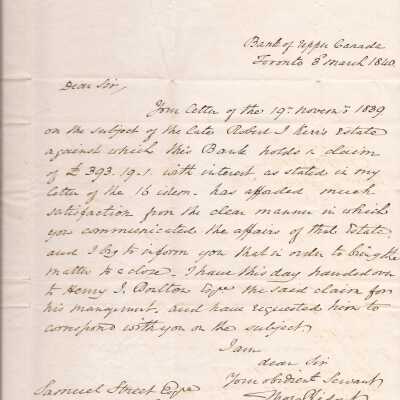 Bank of Upper Canada
Toronto 3d March 1840
Dear Sir,
Your letter of the 19th Novemr 1839
on the subject of the late Robert J Kerr's Estate
against which this Bank holds a claim
of £ 393.19.1. with interest, as stated in my
letter of the 16 idem. has afforded much
satisfaction from the clear manner in which
you communicated the affairs of that Estate.
and I beg to inform you that in order to bring the
matter to a close. I have this day handed over
to Henry J. Boulton Esqre the said claim for
his management. and have requested him to
correspond with you on the subject
I am
dear Sir
Your obedient Servant
Samuel Street Esqre